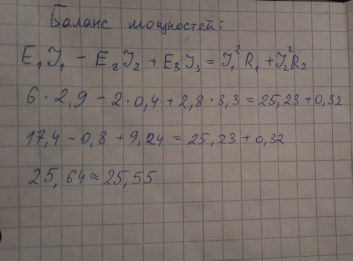 Баланс мощностей:
E₁I₁ - E₂I₂ + E₃I₃ = I₁²R₁ + I₂²R₂
6 · 2,9 - 2 · 0,4 + 2,8 · 3,3 = 25,23 + 0,32
17,4 - 0,8 + 9,24 = 25,23 + 0,32
25,64 ≈ 25,55